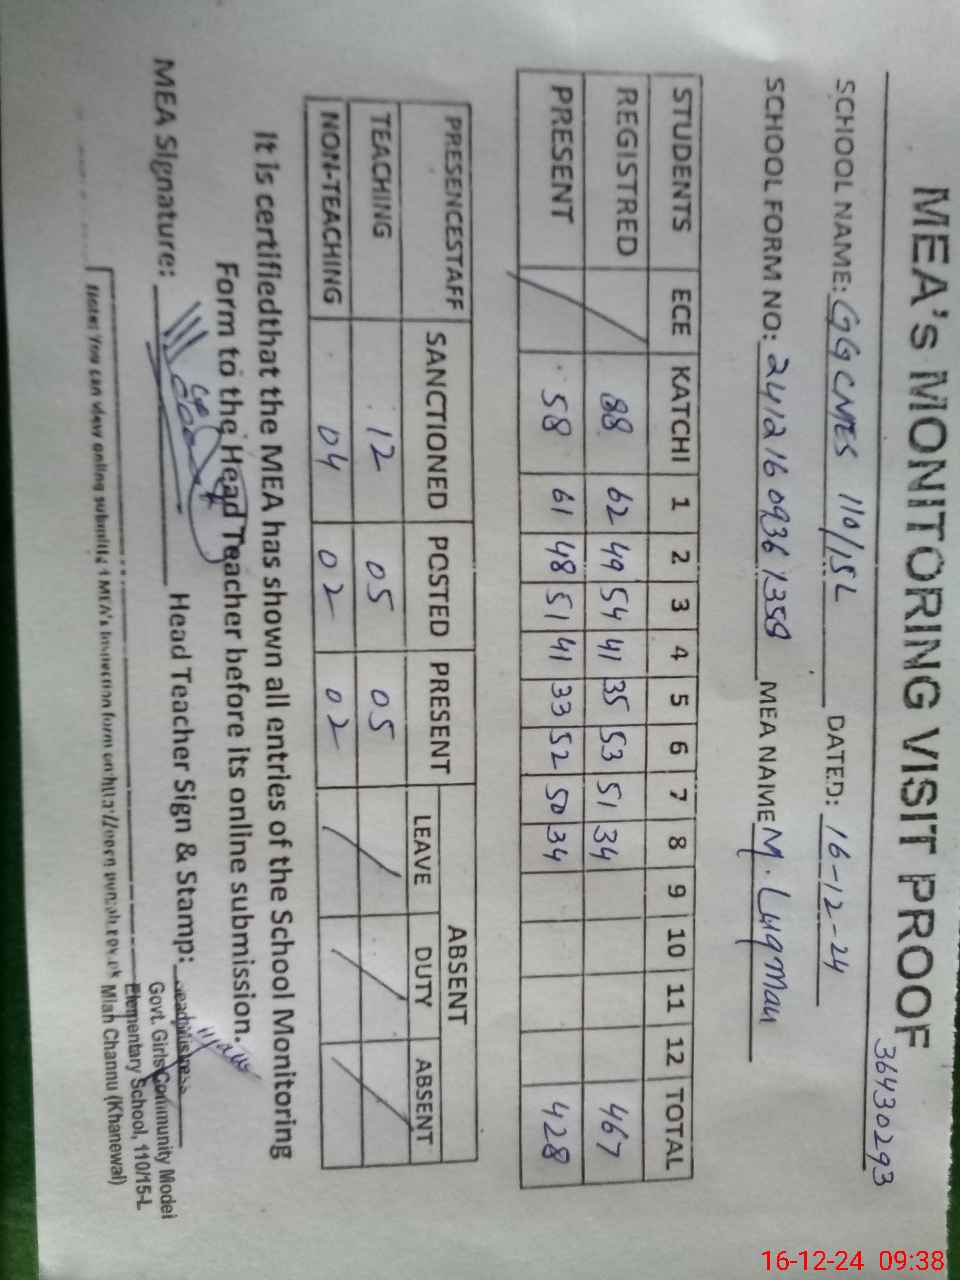 MEA's MONITORING VISIT PROOF
36430293
SCHOOL NAME: GGCMES 110/15L DATED: 16-12-24
SCHOOL FORM NO: 24121609361359 MEA NAME M. Luqman
STUDENTS ECE KATCHI 1 2 3 4 5 6 7 8 9 10 11 12 TOTAL
REGISTRED 88 62 49 54 41 35 53 51 34 467
PRESENT 58 61 48 51 41 33 52 50 34 428
PRESENCESTAFF SANCTIONED POSTED PRESENT ABSENT
LEAVE DUTY ABSENT
TEACHING 12 05 05
NON-TEACHING 04 02 02
It is certifiedthat the MEA has shown all entries of the School Monitoring
Form to the Head Teacher before its online submission.
MEA Signature: Head Teacher Sign & Stamp:
Headmistress
Govt. Girls Community Model
Elementary School, 110/15-L
Mian Channu (Khanewal)
Note: You can view online submitted MEA's Inspection form on
16-12-24 09:38